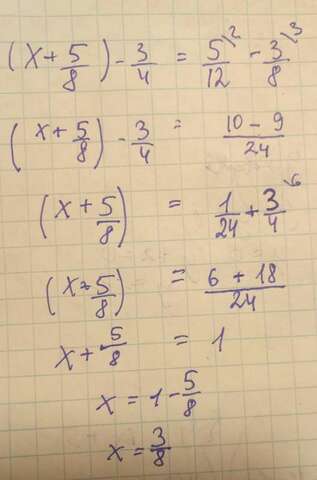 (x + 5/8) - 3/4 = 5/12 \2 - 3/8 \3
(x + 5/8) - 3/4 = (10 - 9)/24
(x + 5/8) = 1/24 + 3/4 \6
(x + 5/8) = (6 + 18)/24
x + 5/8 = 1
x = 1 - 5/8
x = 3/8